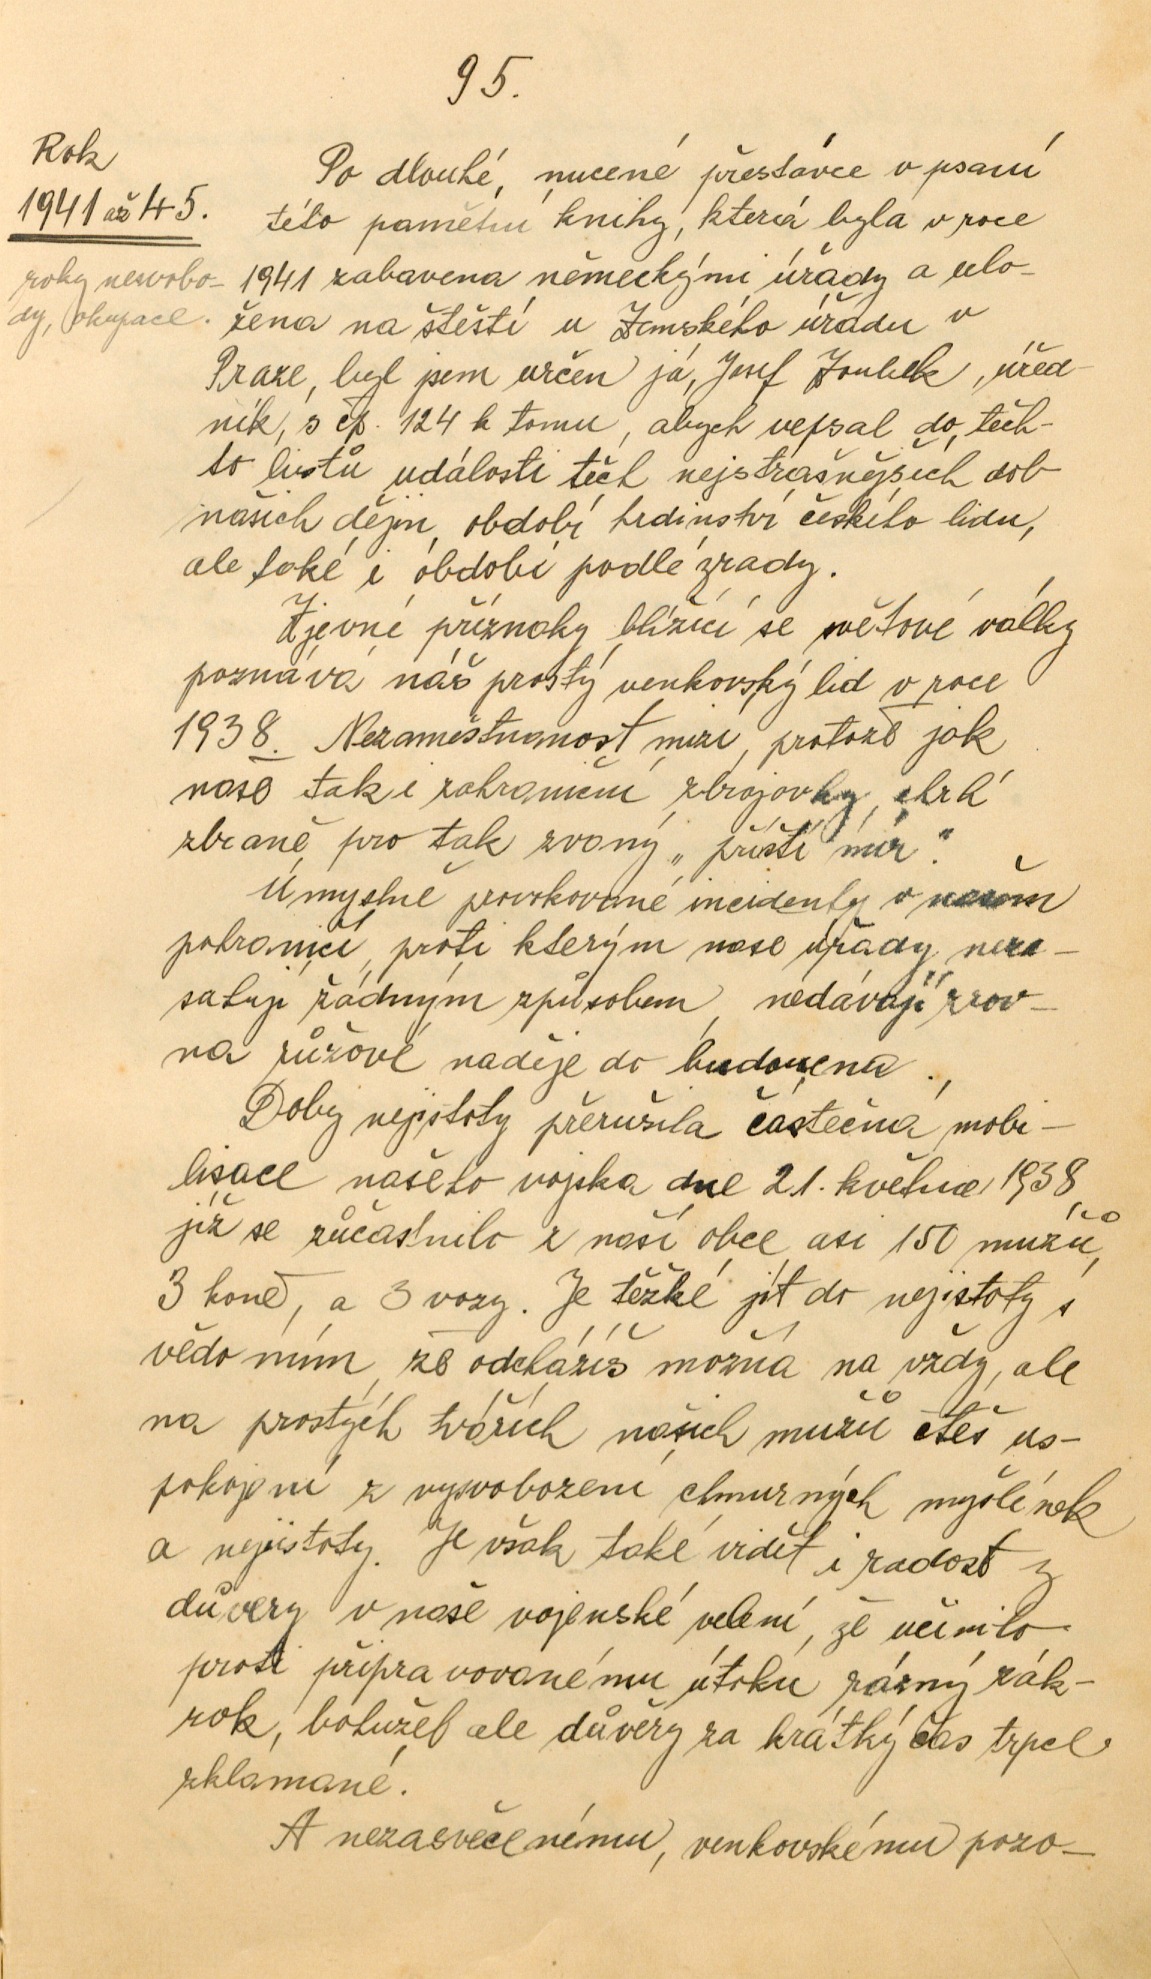 95.
Rok
1941 až 45.
roky nesvobo-
dy, okupace.
Po dlouhé, nucené přestávce v psaní
této pamětní knihy, která byla v roce
1941 zabavena německými úřady a ulo-
žena na štěstí u Zemského úřadu v
Praze, byl jsem určen já, Josef Zoubek, úřed-
ník, s čp. 124 k tomu, abych vepsal do těch-
to listů události těch nejstrašnějších dob
našich dějin, období hrdinství českého lidu,
ale také i období podlé zrady.
Zjevné příznaky blížící se světové války
poznává náš prostý venkovský lid v roce
1938. Nezaměstnanost mizí, protože jak
naše tak i zahraniční zbrojovky chrlí
zbraně pro tak zvaný „příští mír".
Úmyslně provokované incidenty v našem
pohraničí, proti kterým naše úřady neza-
sahují žádným způsobem, nedávají zrov-
na růžové naděje do budoucna.
Doby nejistoty přerušila částečná mobi-
lisace našeho vojska dne 21. května 1938,
již se zůčastnilo z naší obce asi 150 mužů,
3 koně, a 3 vozy. Je těžké jít do nejistoty s
vědomím, že odcházíš možná na vždy, ale
na prostých tvářích našich mužů čteš us-
pokojení z vysvobození chmurných myšlének
a nejistoty. Je však také vidět i radost z
důvěry v naše vojenské velení, že učinilo
proti připravovanému útoku rázný zák-
rok, bohužel ale důvěry za krátký čas trpce
zklamané.
A nezasvěcenému, venkovskému pozo-